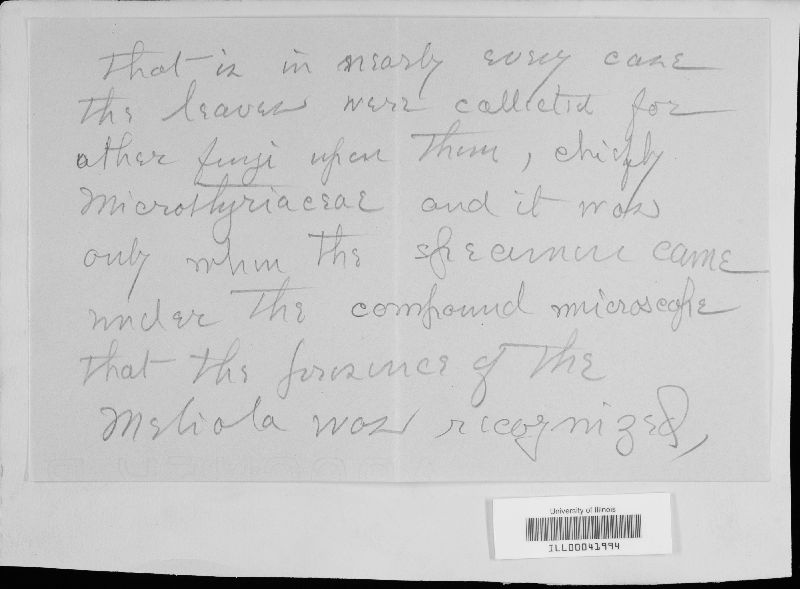 That is in nearly every case
the leaves were collected for
other fungi upon them, chiefly
Microthyriaceae and it was
only when the specimen came
under the compound microscope
that the presence of the
Meliola was recognized,
University of Illinois
ILL00041994